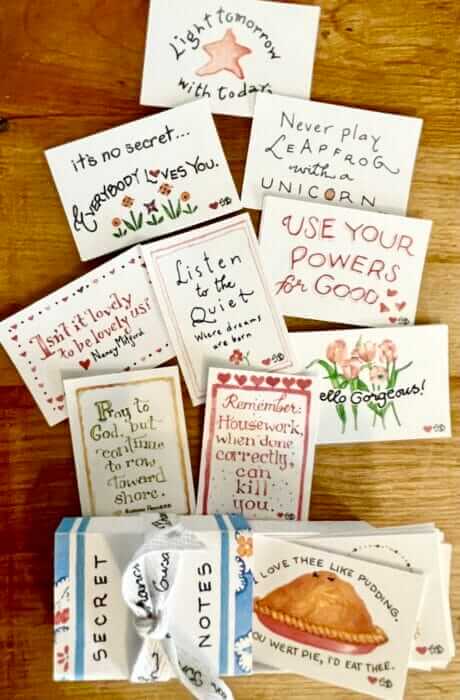 Light tomorrow
with today
it's no secret...
EVERYBODY LOVES YOU.
Never play
LEAPFROG
with a
UNICORN
USE YOUR
POWERS
for GOOD
Listen
to the
Quiet
Where dreams
are born
Isn't it lovely
to be lovely us!
Nancy Mitford
Hello Gorgeous!
Pray to
God, but
continue
to row
toward
shore.
Remember:
Housework,
when done
correctly,
can
kill
you.
SECRET
NOTES
I LOVE THEE LIKE PUDDING.
YOU WERT PIE, I'D EAT THEE.